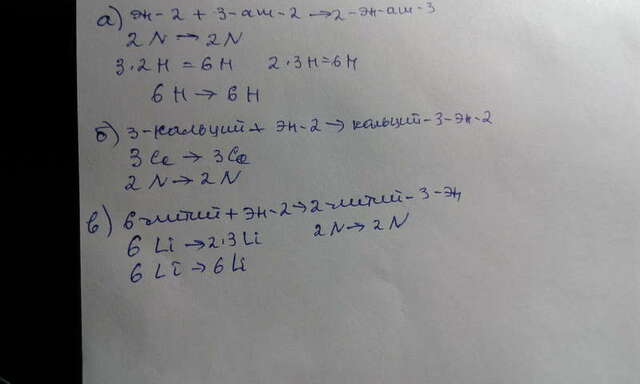 а) эн-2 + 3-аш-2 → 2-эн-аш-3
2 N → 2 N
3·2H = 6H 2·3H = 6H
6 H → 6 H
б) 3-кальций + эн-2 → кальций-3-эн-2
3 Ca → 3 Ca
2 N → 2 N
в) 6-литий + эн-2 → 2-литий-3-эн
6 Li → 2·3 Li 2 N → 2 N
6 Li → 6 Li